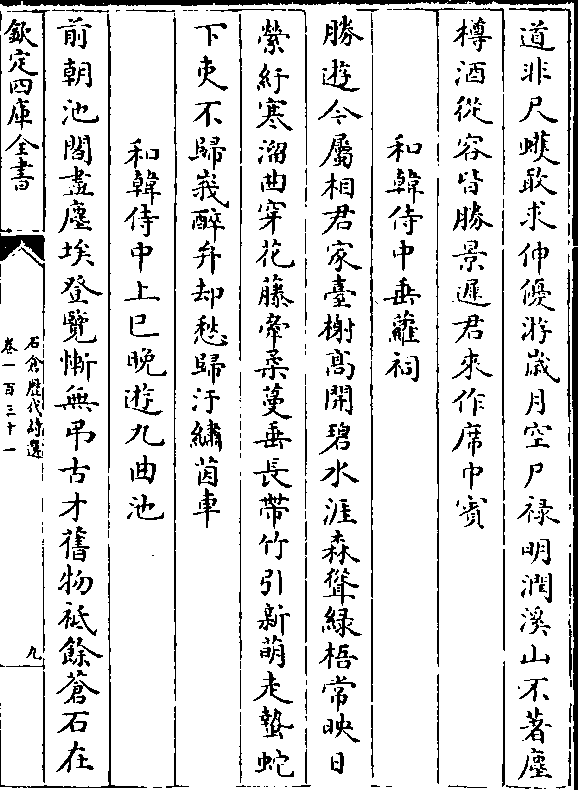 道非尺蠖敢求伸優游嵗月空尸禄明潤溪山不著塵
樽酒從容皆勝景遲君來作席中賔
和韓侍中垂蘿祠
勝遊今屬相君家臺榭髙開碧水涯森聳緑梧常映日
縈紆寒溜曲穿花藤牽柔蔓垂長帶竹引新萌走蟄蛇
下吏不歸峩醉弁却愁歸汙繡茵車
和韓侍中上巳晚遊九曲池
前朝池閣盡塵埃登覽慚無弔古才舊物祗餘蒼石在
欽定四庫全書
石倉歴代詩選
卷一百三十一
九